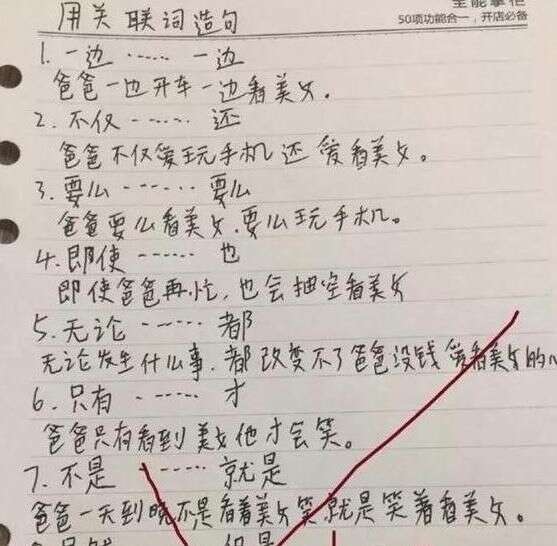 全能掌柜
50项功能合一，开店必备
用关联词造句
1. 一边 …… 一边
爸爸一边开车一边看美女。
2. 不仅 …… 还
爸爸不仅爱玩手机还爱看美女。
3. 要么 …… 要么
爸爸要么看美女,要么玩手机。
4. 即使 …… 也
即使爸爸再忙,也会抽空看美女
5. 无论 …… 都
无论发生什么事,都改变不了爸爸没钱爱看美女的
6. 只有 …… 才
爸爸只有看到美女他才会笑。
7. 不是 …… 就是
爸爸一天到晚不是看着美女笑,就是笑着看美女。